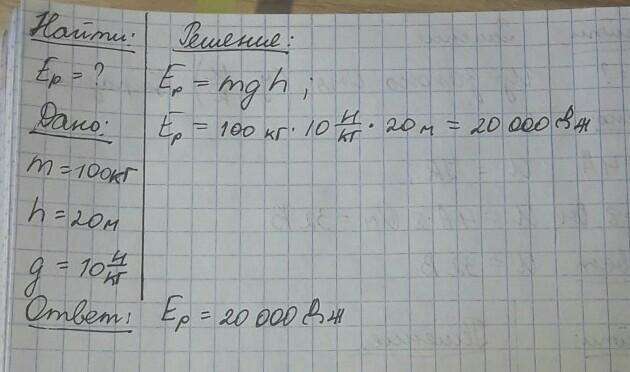 Найти:
Ep = ?
Дано:
m = 100кг
h = 20м
g = 10 Н/кг
Решение:
Ep = mgh ;
Ep = 100 кг · 10 Н/кг · 20 м = 20 000 Дж
Ответ: Ep = 20 000 Дж